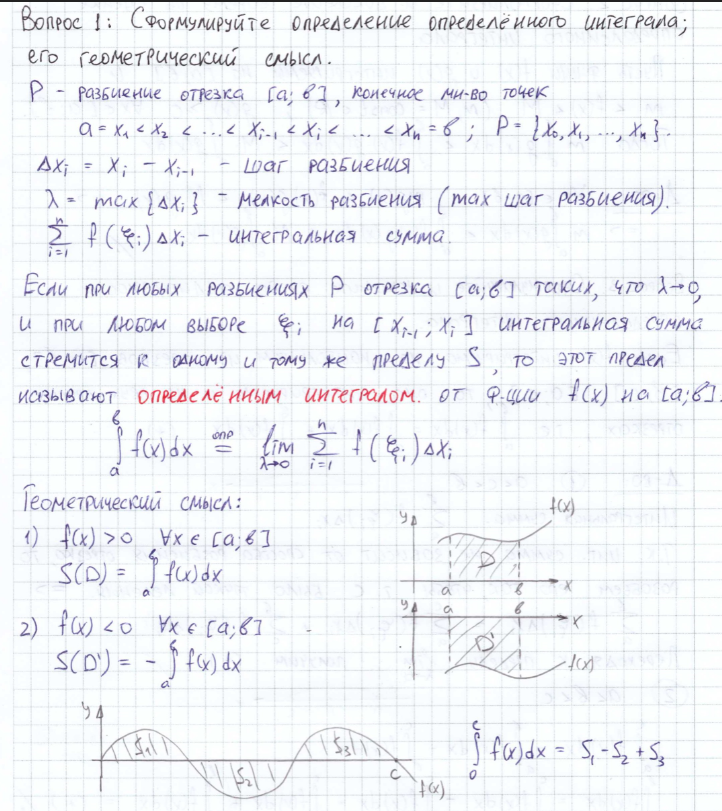 Вопрос 1: Сформулируйте определение определённого интеграла;
его геометрический смысл.
P - разбиение отрезка [a; в], конечное мн-во точек
a = x₁ < x₂ < ... < xᵢ₋₁ < xᵢ < ... < xₙ = в ; P = {x₀, x₁, ..., xₙ}.
Δxᵢ = xᵢ - xᵢ₋₁ - шаг разбиения
λ = max{Δxᵢ} - мелкость разбиения (max шаг разбиения).
∑ᵢ₌₁ⁿ f(ξᵢ)Δxᵢ - интегральная сумма.
Если при любых разбиениях P отрезка [a;в] таких, что λ→0,
и при любом выборе ξᵢ на [xᵢ₋₁; xᵢ] интегральная сумма
стремится к одному и тому же пределу S, то этот предел
называют определённым интегралом. от ф-ции f(x) на [a;в].
∫ₐᵇ f(x)dx опр = lim λ→0 ∑ᵢ₌₁ⁿ f(ξᵢ)Δxᵢ
Геометрический смысл:
1) f(x) > 0 ∀x ∈ [a;в]
S(D) = ∫ₐᵇ f(x)dx
y f(x)
D
a в x
2) f(x) < 0 ∀x ∈ [a;в]
S(D') = - ∫ₐᵇ f(x)dx
y a в x
D'
f(x)
y
S₁ S₂ S₃ c f(x)
∫₀ᶜ f(x)dx = S₁ - S₂ + S₃